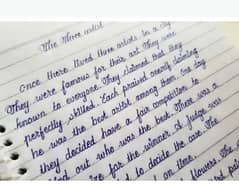 The Three artist
Once there lived three artists in a city
They were famous for their art They were
known to everyone They claimed that they
perfectly skilled. Each praised oneself claiming
he was the best artist among them One day
they decided have a fair competition to
out who was the best. There was a
for the winner. A judge was
to decide the case. The
on time.
flowers. The